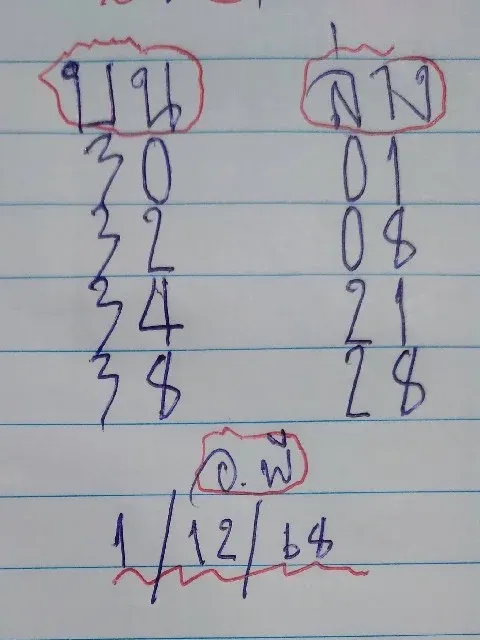 บน ล่าง
30 01
32 08
34 21
38 28
อ.พี
1/12/68